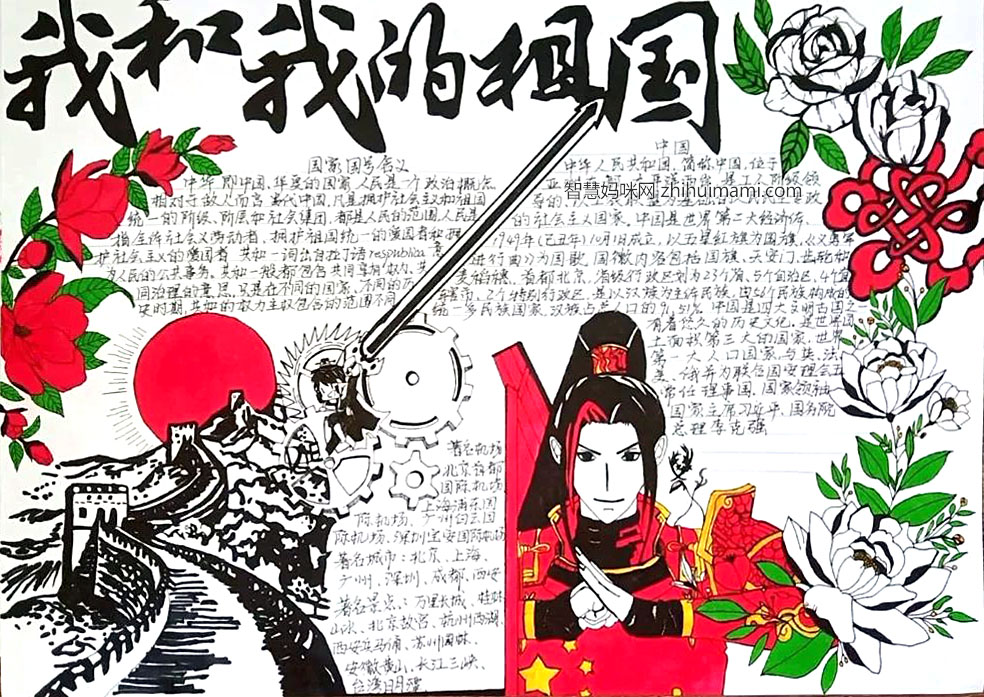 我和我的祖国
国家国号含义
中华,即中国,华夏的国家,人民是一个政治概念
相对于敌人而言,当代中国,凡是拥护社会主义和祖国
统一的阶级、阶层和社会集团,都是人民的范围,人民是
指全体社会主义劳动者、拥护祖国统一的爱国者和拥
护社会主义的爱国者,共和一词出自拉丁语respublica,意
为人民的公共事务。共和一般都包含共同享有权力、共
同治理的意思,只是在不同的国家、不同的历
史时期,共和的权力主权包含的范围不同
中国
中华人民共和国,简称中国,位于
智慧妈咪网 zhihuimami.com
的社会主义国家。中国是世界第二大经济体,
1949年(己丑年)10月1日成立,以五星红旗为国旗,《义勇军
进行曲》为国歌,国徽内容包括国旗、天安门、齿轮和
麦稻穗,首都北京,省级行政区划为23个省、5个自治区、4个直
辖市、2个特别行政区,是以汉族为主体民族,由56个民族构成的
统一多民族国家,汉族占总人口的91.51%。中国是四大文明古国之
有着悠久的历史文化,是世界国
土面积第三大的国家,世界
第一大人口国家,与英、法、
美、俄并为联合国安理会五
常任理事国,国家领袖
国家主席习近平,国务院
总理李克强
著名机场
北京首都
国际机场
上海浦东国
际机场、广州白云国
际机场、深圳宝安国际机场
著名城市:北京、上海、
广州、深圳、成都、西安
著名景点:万里长城、桂林
山水、北京故宫、杭州西湖、
西安兵马俑、苏州园林、
安徽黄山、长江三峡、
台湾日月潭